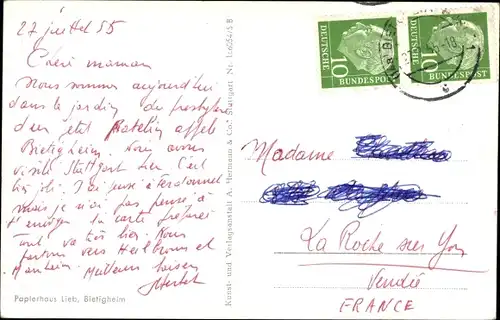 27 juillet 55
Chère maman
Nous sommes aujourd'hui
dans le jardin du presbytère
d'un petit patelin appelé
Bietigheim. Nous avons
visité Stuttgart hier. C'est
très joli. J'ai pensé à
mais je n'ai pas pensé à
t'envoyer la carte
Tout va très bien. Nous
partons vers Heilbronn et
Manheim. Meilleurs baisers
Papierhaus Lieb, Bietigheim
Kunst- und Verlagsanstalt A. Hermann & Co., Stuttgart Nr.
DEUTSCHE
BUNDESPOST
10
DEUTSCHE
BUNDESPOST
10
Madame
La Roche sur Yon
Vendée
FRANCE